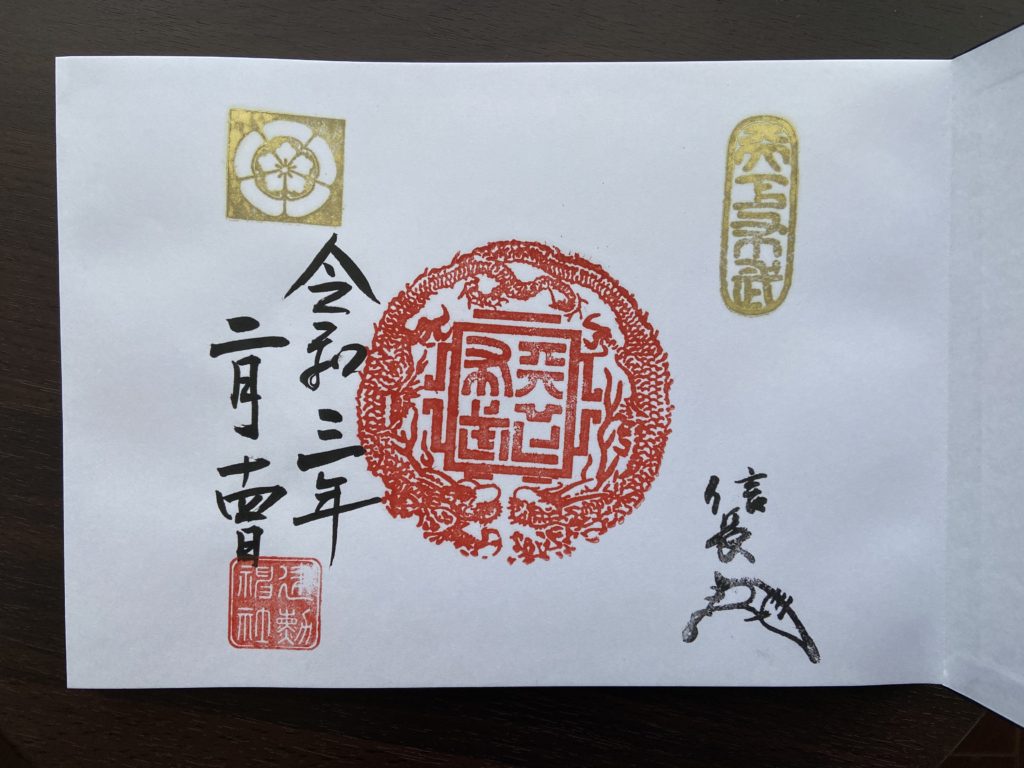 天下布武
信長
天下布武
令和三年
二月十四日
建勲
神社